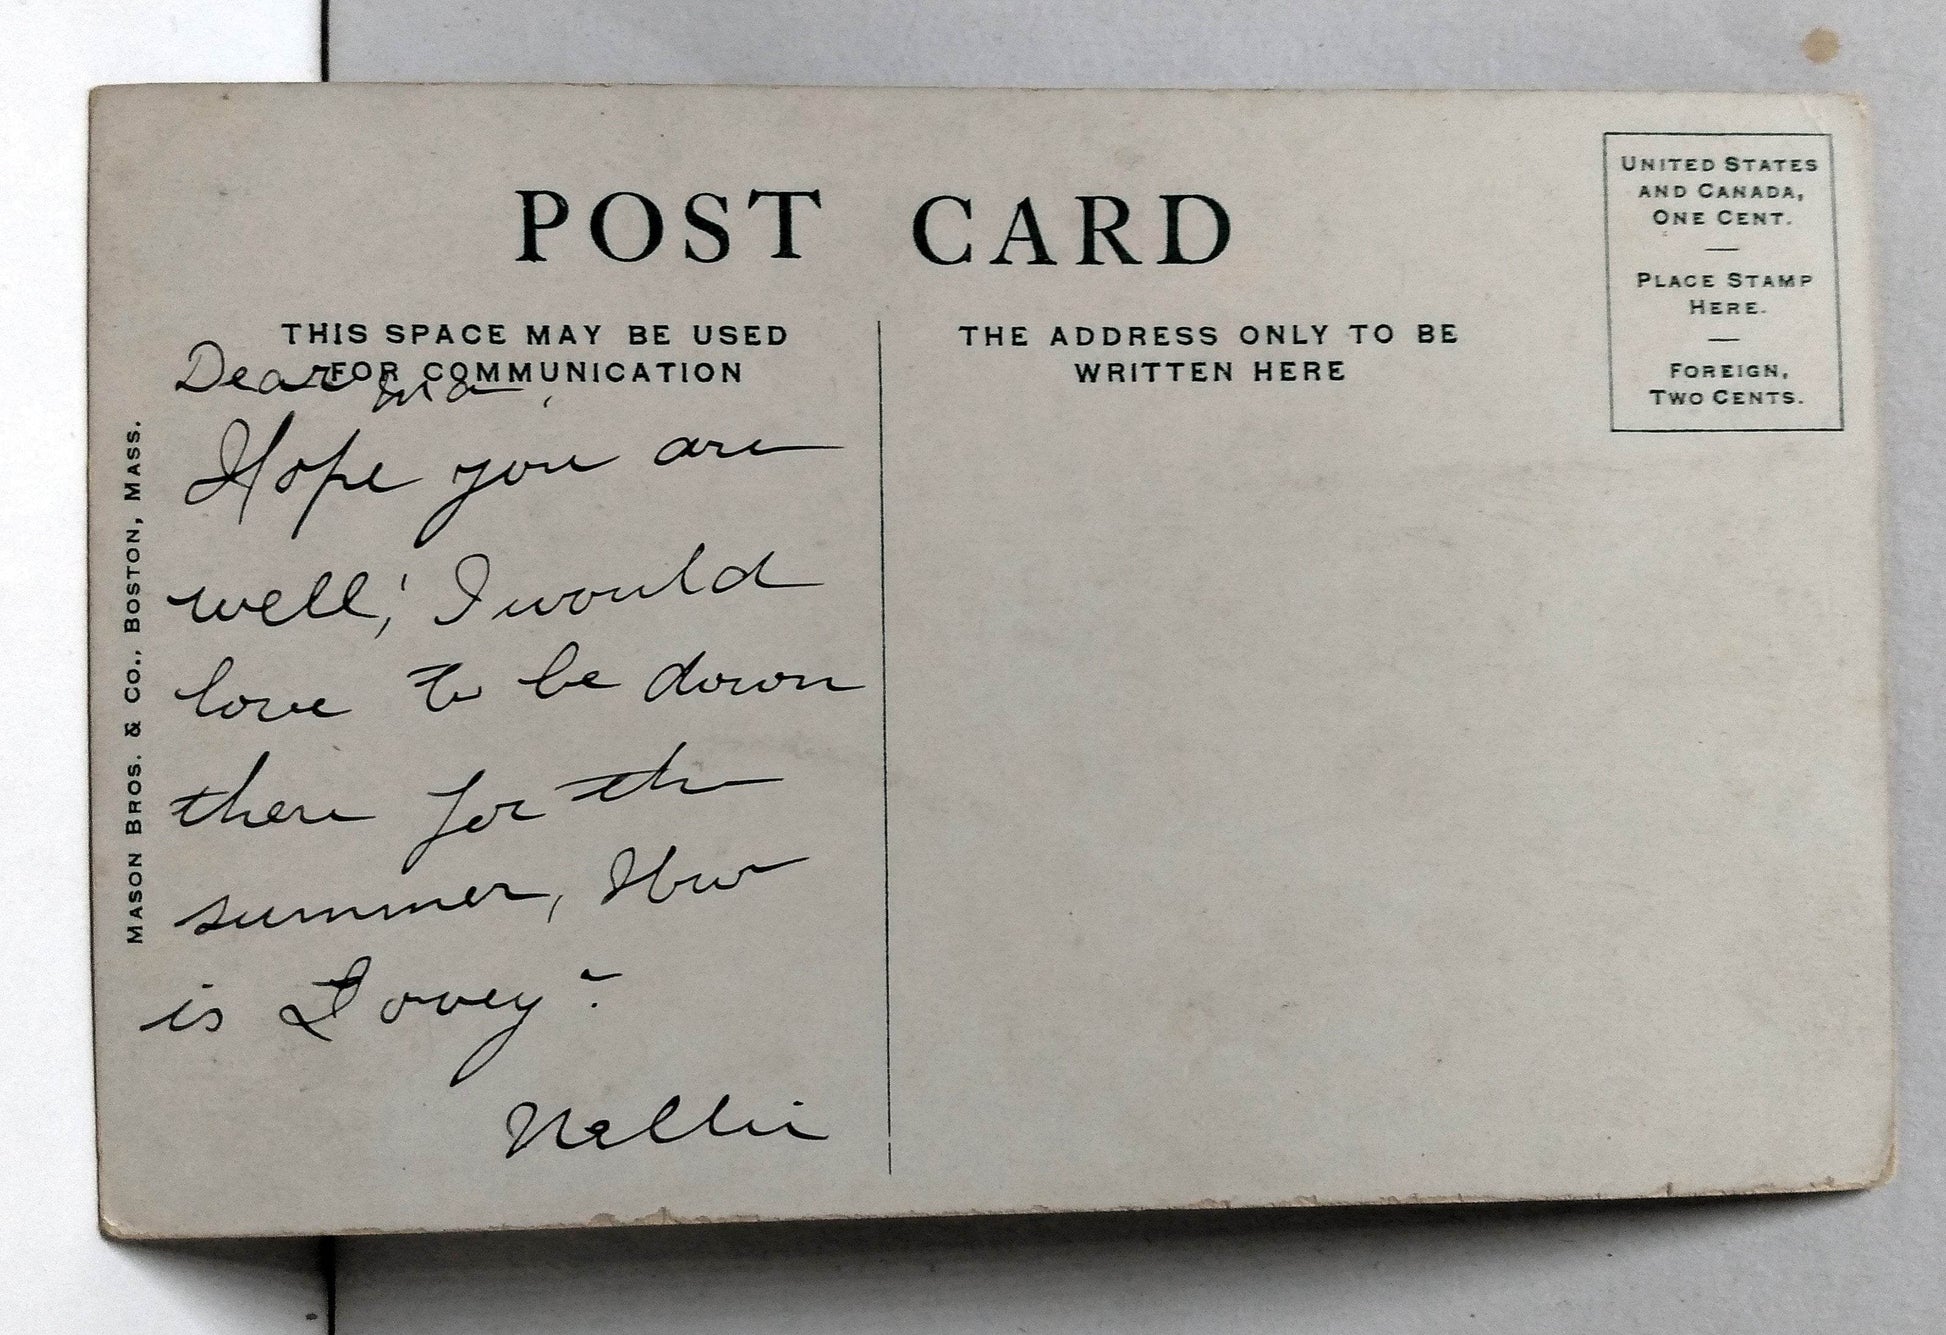 POST CARD
THIS SPACE MAY BE USED
FOR COMMUNICATION
THE ADDRESS ONLY TO BE
WRITTEN HERE
UNITED STATES
AND CANADA,
ONE CENT.
PLACE STAMP
HERE.
FOREIGN,
TWO CENTS.
MASON BROS. & CO., BOSTON, MASS.
Dear
Hope you are
well, I would
love to be down
there for the
summer, How
is Dovey?
Nellie